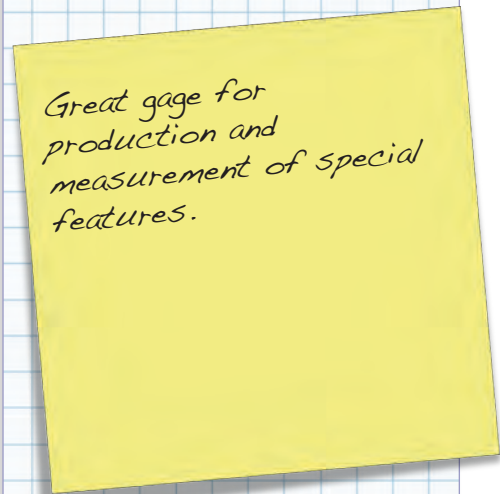 Great gage for
production and
measurement of special
features.